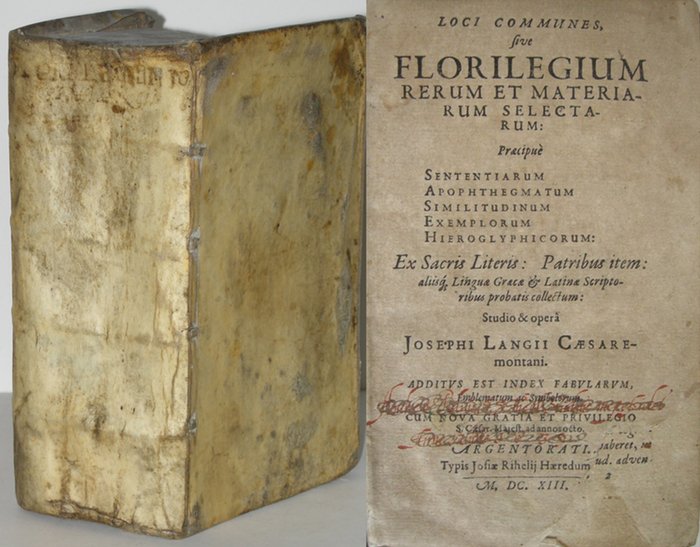 LOCI COMMUNES,
sive
FLORILEGIUM
RERUM ET MATERIA-
RUM SELECTA-
RUM:
Præcipuè
SENTENTIARUM
APOPHTHEGMATUM
SIMILITUDINUM
EXEMPLORUM
HIEROGLYPHICORUM:
Ex Sacris Literis: Patribus item:
aliisq́; Linguæ Græcæ & Latinæ Scripto-
ribus probatis collectum:
Studio & operâ
JOSEPHI LANGII CÆSARE-
montani.
ADDITUS EST INDEX FABULARUM,
Emblematum ac Symbolorum.
CUM NOVA GRATIA ET PRIVILEGIO
S. Cæsar. Majest. ad annos octo.
ARGENTORATI.
Typis Josiæ Rihelij Hæredum
M. DC. XIII.
haberet, in
ud. adven
2